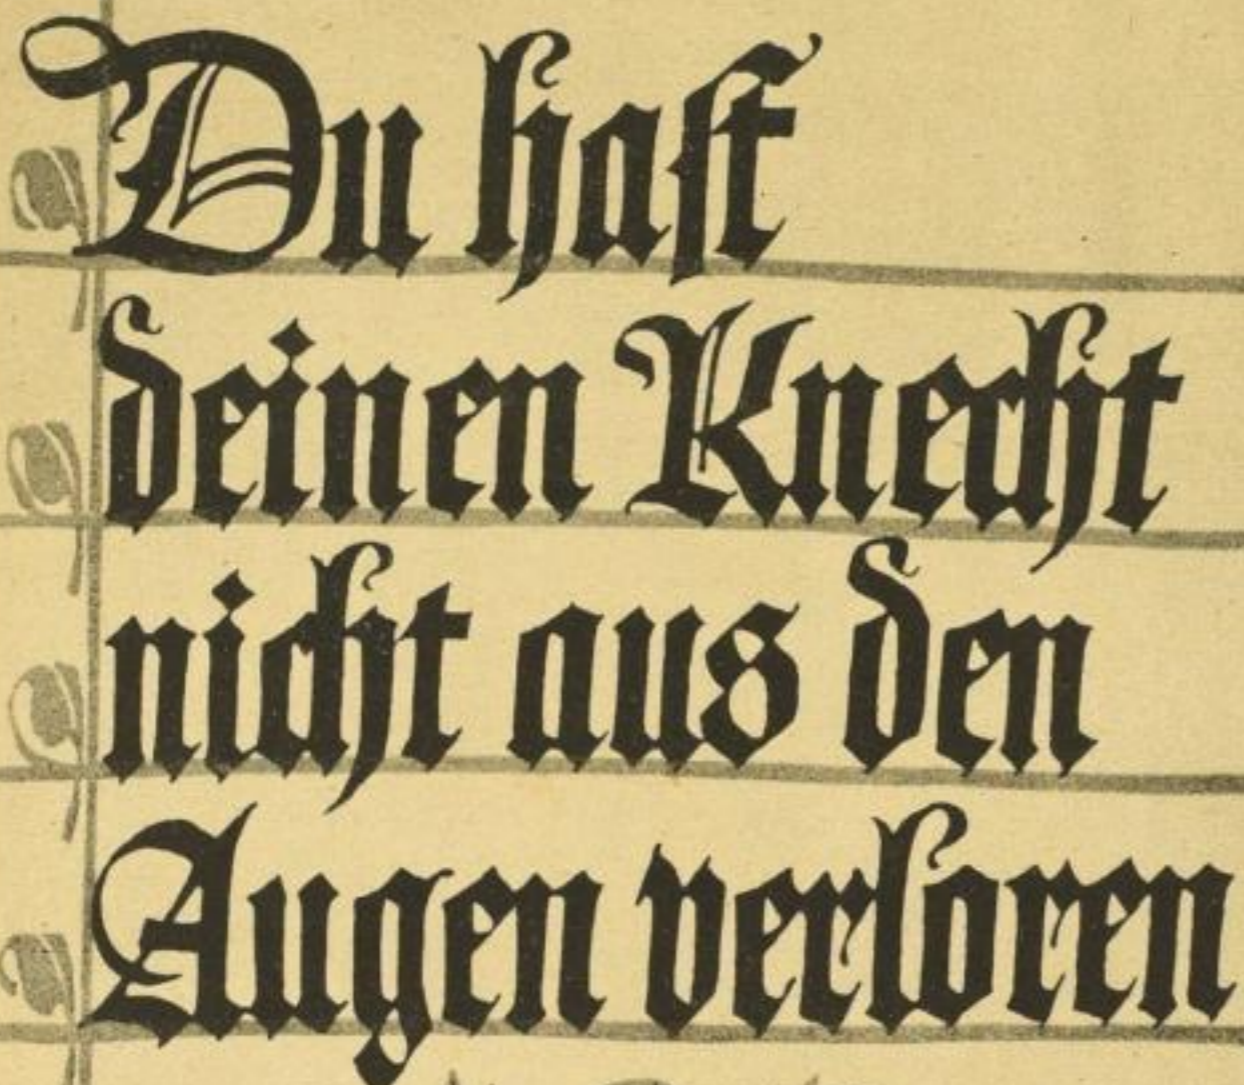 Du hast
deinen Knecht
nicht aus den
Augen verloren